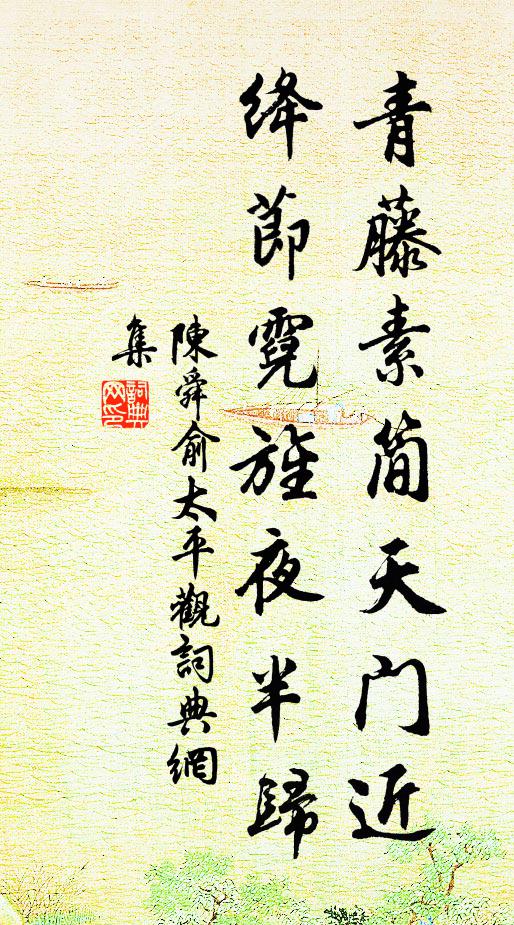 青藤素简天门近
绛节霓旌夜半歸
陳舜俞太平觀詞典網
集
詞典
网印